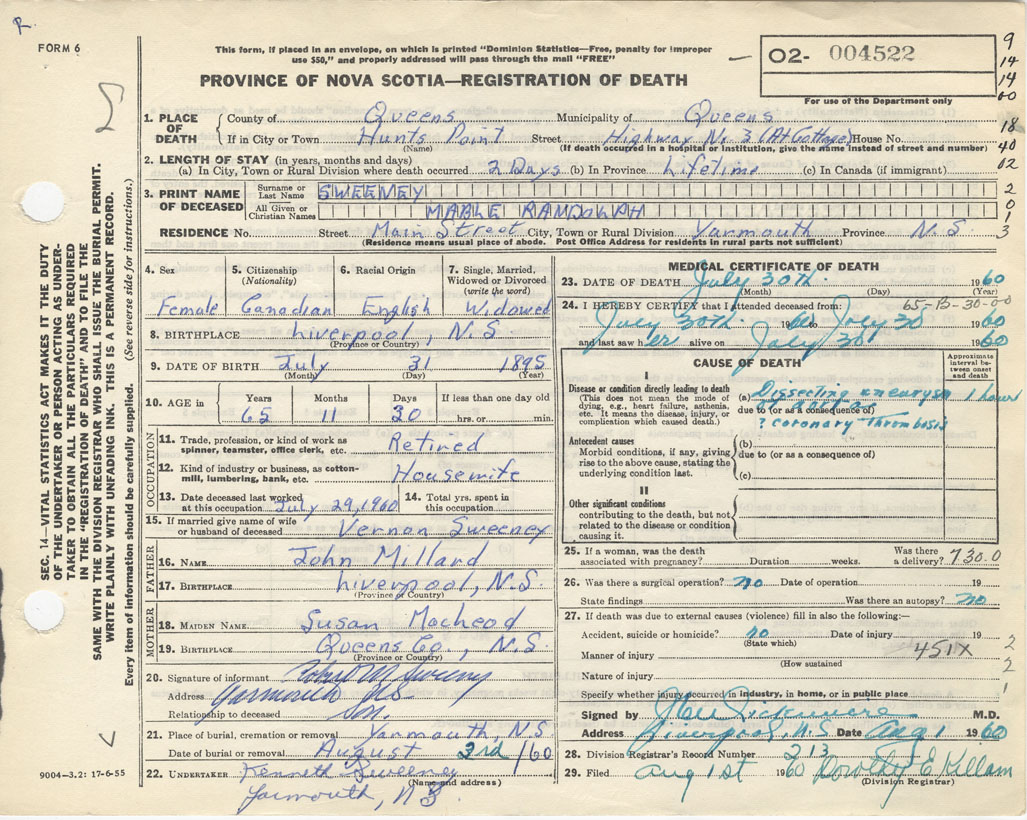 R
FORM 6
This form, if placed in an envelope, on which is printed "Dominion Statistics—Free, penalty for improper
use $50," and properly addressed will pass through the mail "FREE"
PROVINCE OF NOVA SCOTIA—REGISTRATION OF DEATH
02- 004522
For use of the Department only
9
14
14
00
18
40
02
2
0
1
3
SEC. 14—VITAL STATISTICS ACT MAKES IT THE DUTY
OF THE UNDERTAKER OR PERSON ACTING AS UNDER-
TAKER TO OBTAIN ALL THE PARTICULARS REQUIRED
IN THE "REGISTRATION OF DEATH" AND TO FILE THE
SAME WITH THE DIVISION REGISTRAR WHO SHALL ISSUE THE BURIAL PERMIT.
WRITE PLAINLY WITH UNFADING INK. THIS IS A PERMANENT RECORD.
Every item of information should be carefully supplied. (See reverse side for instructions.)
1. PLACE OF DEATH
County of Queens Municipality of Queens
If in City or Town Hunts Point Street Highway No. 3 (At Cottage) House No.
(Name) (If death occurred in a hospital or institution, give the name instead of street and number)
2. LENGTH OF STAY (in years, months and days)
(a) In City, Town or Rural Division where death occurred 2 Days (b) In Province Lifetime (c) In Canada (if immigrant)
3. PRINT NAME OF DECEASED
Surname or Last Name SWEENEY
All Given or Christian Names MABLE RANDOLPH
RESIDENCE No. Street Main Street City, Town or Rural Division Yarmouth Province N.S.
(Residence means usual place of abode. Post Office Address for residents in rural parts not sufficient)
4. Sex 5. Citizenship 6. Racial Origin 7. Single, Married,
(Nationality) Widowed or Divorced
(write the word)
Female Canadian English Widowed
8. BIRTHPLACE Liverpool, N.S
(Province or Country)
9. DATE OF BIRTH July 31 1895
(Month) (Day) (Year)
10. AGE in Years Months Days If less than one day old
65 11 30 hrs. or min.
OCCUPATION
11. Trade, profession, or kind of work as
spinner, teamster, office clerk, etc. Retired
12. Kind of industry or business, as cotton-
mill, lumbering, bank, etc. Housewife
13. Date deceased last worked
at this occupation July 29, 1960
14. Total yrs. spent in
this occupation
15. If married give name of wife
or husband of deceased Vernon Sweeney
FATHER
16. NAME John Millard
17. BIRTHPLACE Liverpool, N.S
(Province or Country)
MOTHER
18. MAIDEN NAME Susan Macleod
19. BIRTHPLACE Queens Co., N.S
(Province or Country)
20. Signature of informant Robert M Sweeny
Address Yarmouth NS
Relationship to deceased Son.
21. Place of burial, cremation or removal Yarmouth, N.S
Date of burial or removal August 2rd /60
22. UNDERTAKER Kenneth Sweeney
(Name and address)
Yarmouth, N.S.
9004—3.2: 17-6-55
MEDICAL CERTIFICATE OF DEATH
23. DATE OF DEATH July 30th 1960
(Month) (Day) (Year)
24. I HEREBY CERTIFY that I attended deceased from: 65-B-30-00
July 30th 1960 to July 30 1960
and last saw her alive on July 30 1960
CAUSE OF DEATH
Approximate interval between onset and death
I
Disease or condition directly leading to death
(This does not mean the mode of
dying, e.g., heart failure, asthenia,
etc. It means the disease, injury, or
complication which caused death.)
(a) Dissecting aneurysm 1 hour
due to (or as a consequence of)
? coronary thrombosis
Antecedent causes
Morbid conditions, if any, giving
rise to the above cause, stating the
underlying condition last.
(b)
due to (or as a consequence of)
(c)
II
Other significant conditions
contributing to the death, but not
related to the disease or condition
causing it.
25. If a woman, was the death Was there
associated with pregnancy? Duration weeks. a delivery? 730.0
26. Was there a surgical operation? no Date of operation 19
State findings Was there an autopsy? no
27. If death was due to external causes (violence) fill in also the following:—
Accident, suicide or homicide? no Date of injury 19
(State which)
Manner of injury 451X
(How sustained
Nature of injury
Specify whether injury occurred in industry, in home, or in public place
2
2
1
Signed by M.D.
Address Liverpool, N.S. Date Aug 1 1960
28. Division Registrar's Record Number 213
29. Filed Aug 1st 1960 Dorothy E Killam
(Division Registrar)